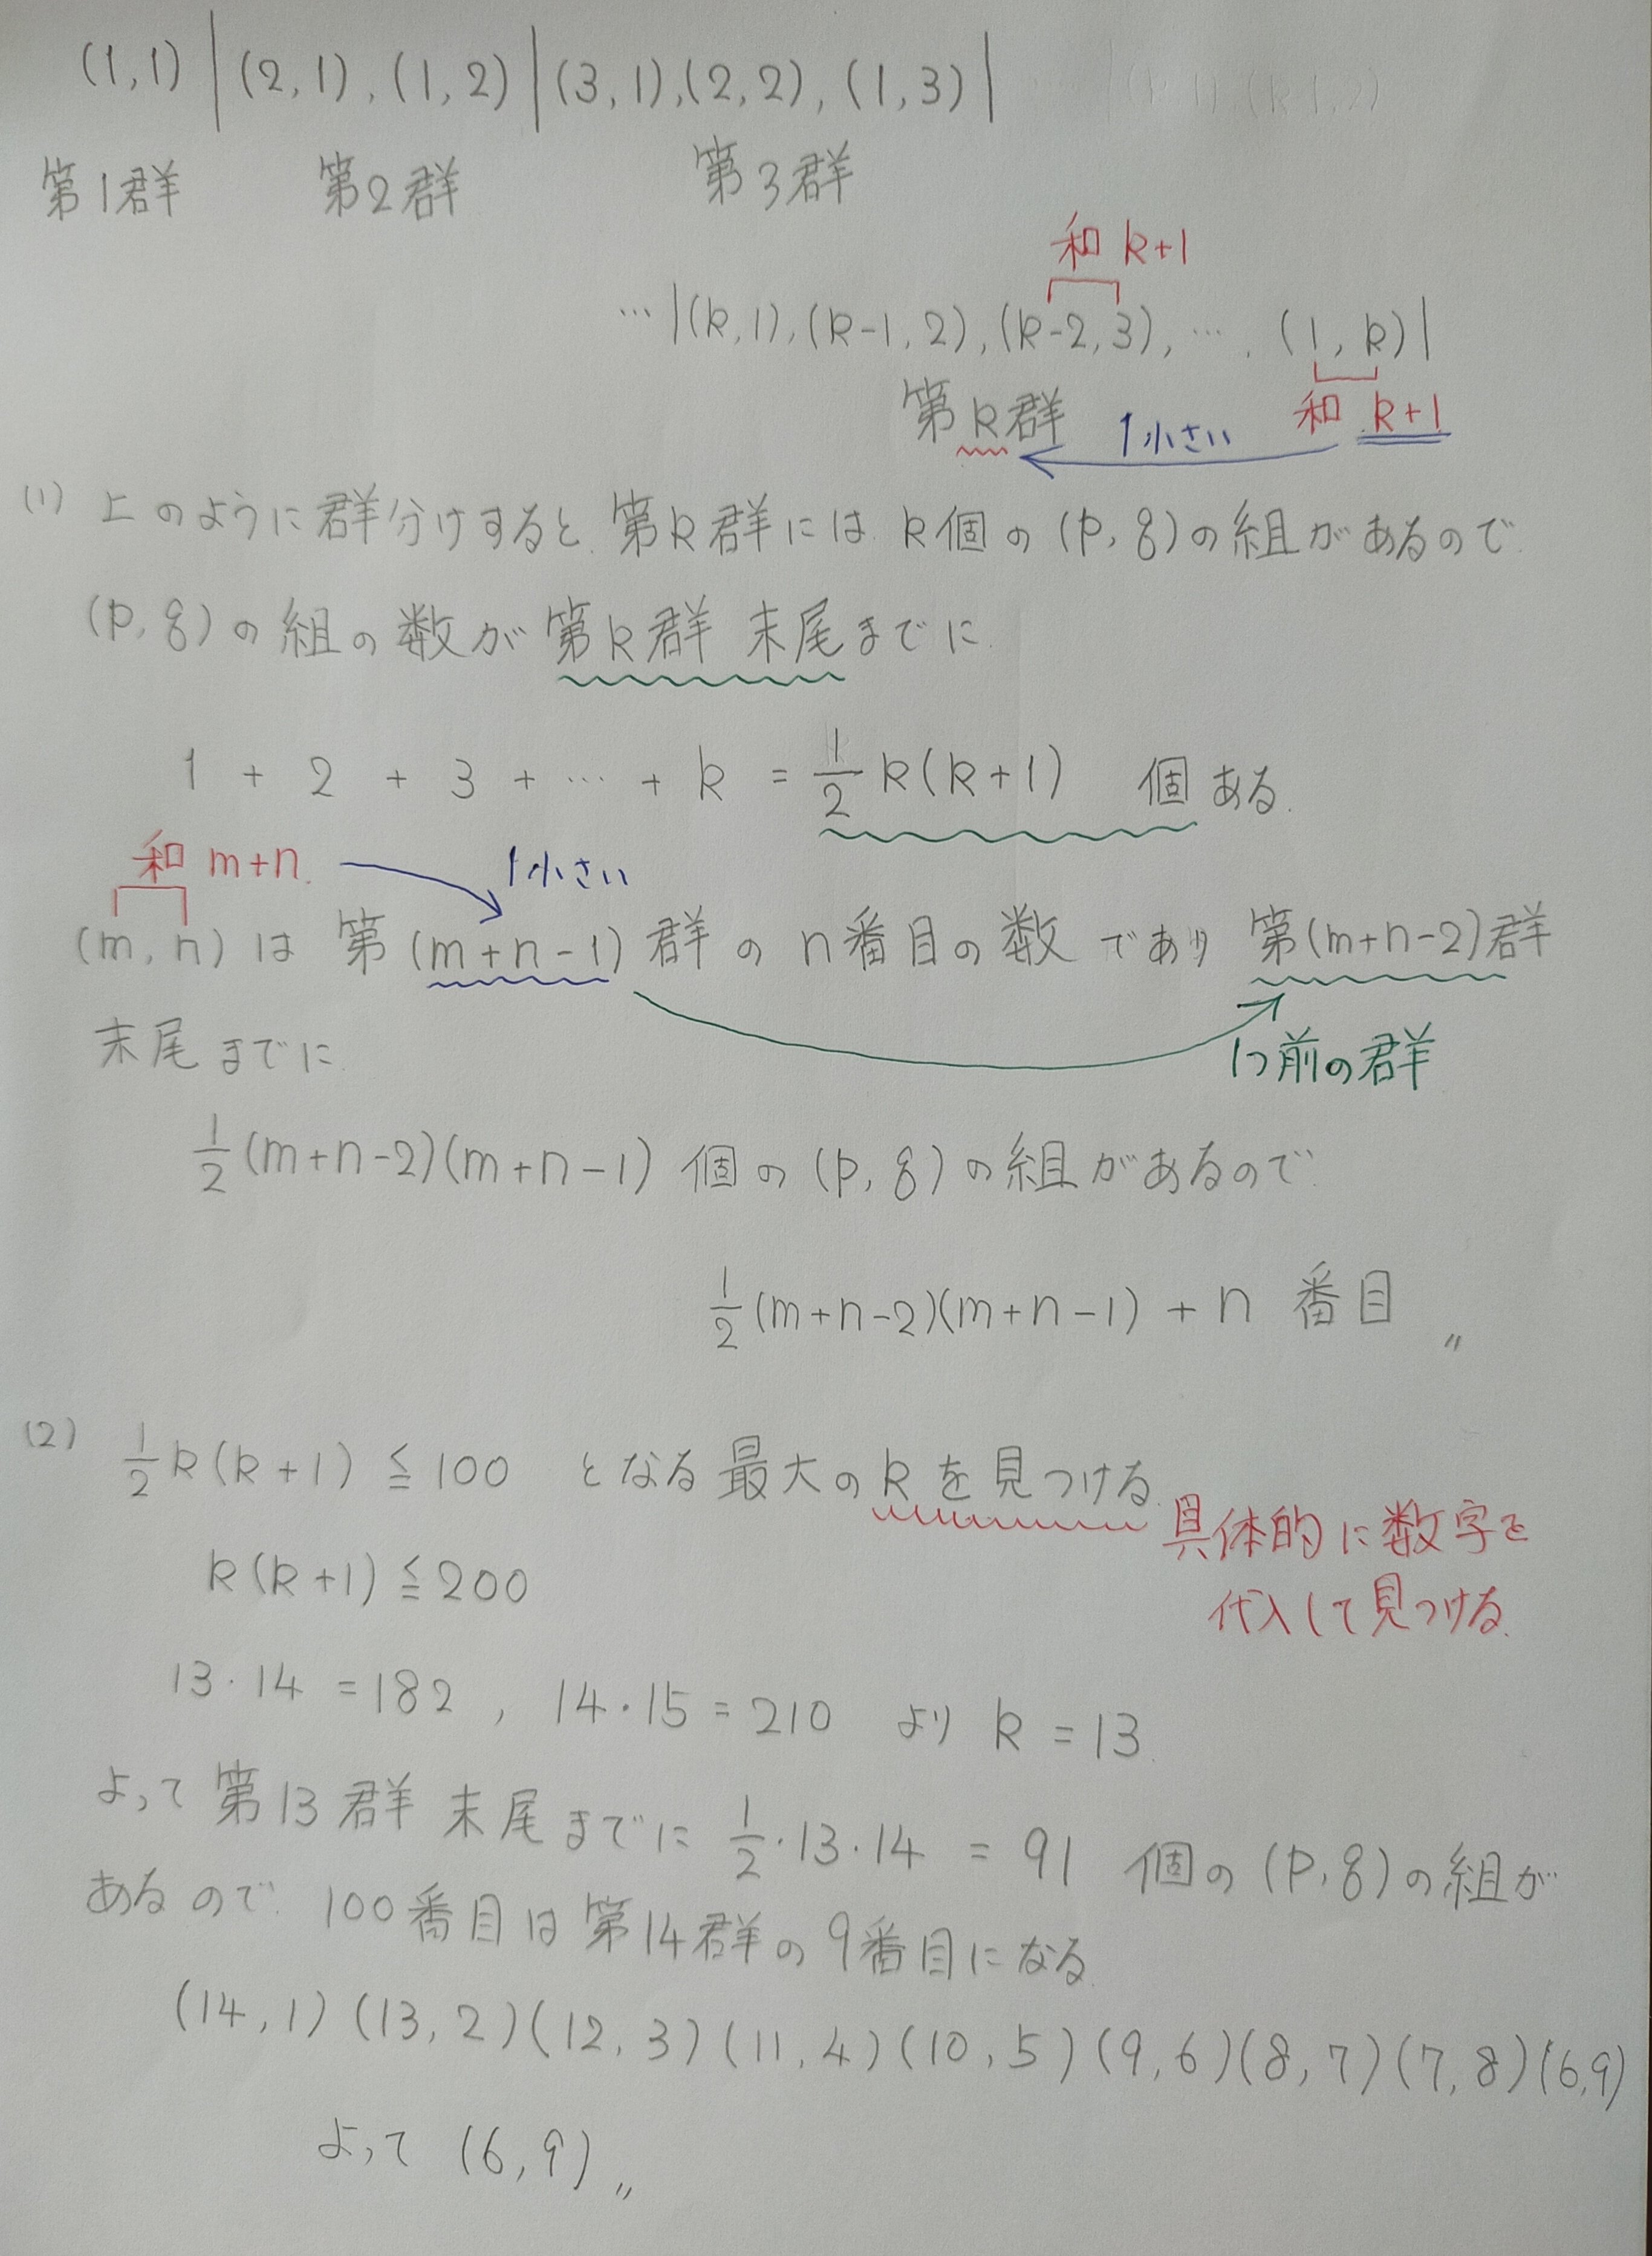 (1,1) | (2,1), (1,2) | (3,1), (2,2), (1,3) |
第1群 第2群 第3群
和 k+1
… | (k,1), (k-1,2), (k-2,3), …, (1,k) |
第k群 1小さい 和 k+1
(1) 上のように群分けすると、第k群には k個の (p,q)の組があるので
(p,q)の組の数が 第k群 末尾までに
1 + 2 + 3 + … + k = 1/2 k(k+1) 個ある.
和 m+n 1小さい
(m,n)は 第(m+n-1)群の n番目の数 であり 第(m+n-2)群
末尾までに 1つ前の群
1/2(m+n-2)(m+n-1) 個の (p,q)の組があるので
1/2(m+n-2)(m+n-1) + n 番目 〃
(2) 1/2 k(k+1) ≦ 100 となる最大のkを見つける
具体的に数字を
k(k+1) ≦ 200
代入して見つける.
13・14 = 182 , 14・15 = 210 より k = 13.
よって 第13群 末尾までに 1/2・13・14 = 91 個の (p,q)の組が
あるので 100番目は第14群の9番目になる
(14,1) (13,2) (12,3) (11,4) (10,5) (9,6) (8,7) (7,8) (6,9)
よって (6,9) 〃